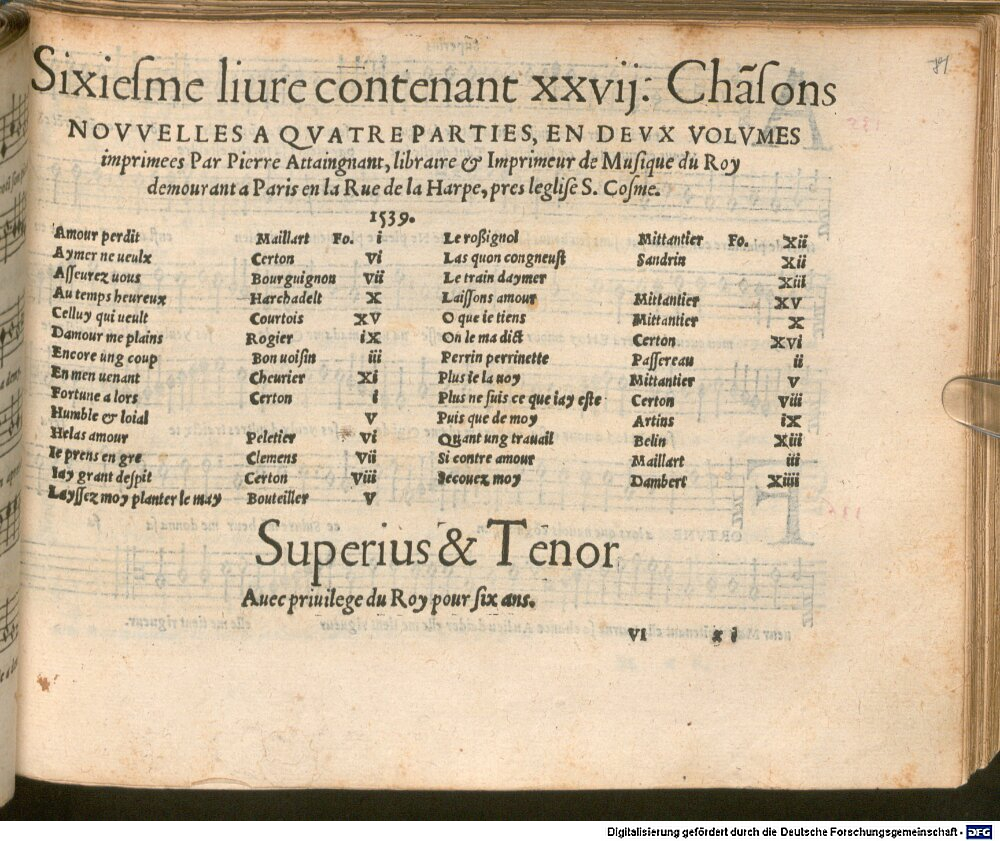 81
Sixiesme liure contenant xxvij: Chãsons
NOVVELLES A QVATRE PARTIES, EN DEVX VOLVMES
imprimees Par Pierre Attaingnant, libraire & Imprimeur de Musique du Roy
demourant a Paris en la Rue de la Harpe, pres leglise S. Cosme.
1539.
Amour perdit Maillart Fo. i Le rossignol Mittantier Fo. Xii
Aymer ne ueulx Certon Vi Las quon congneust Sandrin Xii
Asseurez uous Bourguignon Vii Le train daymer Xiii
Au temps heureux Harchadelt X Laissons amour Mittantier XV
Celluy qui ueult Courtois XV O que ie tiens Mittantier X
Damour me plains Rogier iX On le ma dict Certon XVi
Encore ung coup Bon uoisin iii Perrin perrinette Passereau ii
En men uenant Cheurier Xi Plus ie la uoy Mittantier V
Fortune a lors Certon i Plus ne suis ce que iay este Certon Viii
Humble & loial V Puis que de moy Artins iX
Helas amour Peletier Vi Quant ung trauail Belin Xiii
Ie prens en gre Clemens Vii Si contre amour Maillart iii
Iay grant despit Certon Viii Secouez moy Dambert Xiiii
Layssez moy planter le may Bouteiller V
Superius & Tenor
Auec priuilege du Roy pour six ans.
VI x i
Digitalisierung gefördert durch die Deutsche Forschungsgemeinschaft - DFG